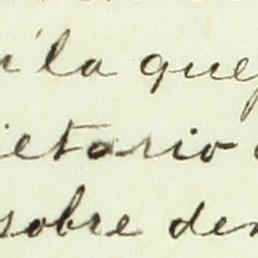 la que
ietario
sobre den